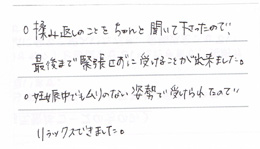 ○揉み返しのことをちゃんと聞いて下さったので、
最後まで緊張せずに受けることが出来ました。
○妊娠中でもムリのない姿勢で受けられたので
リラックスできました。